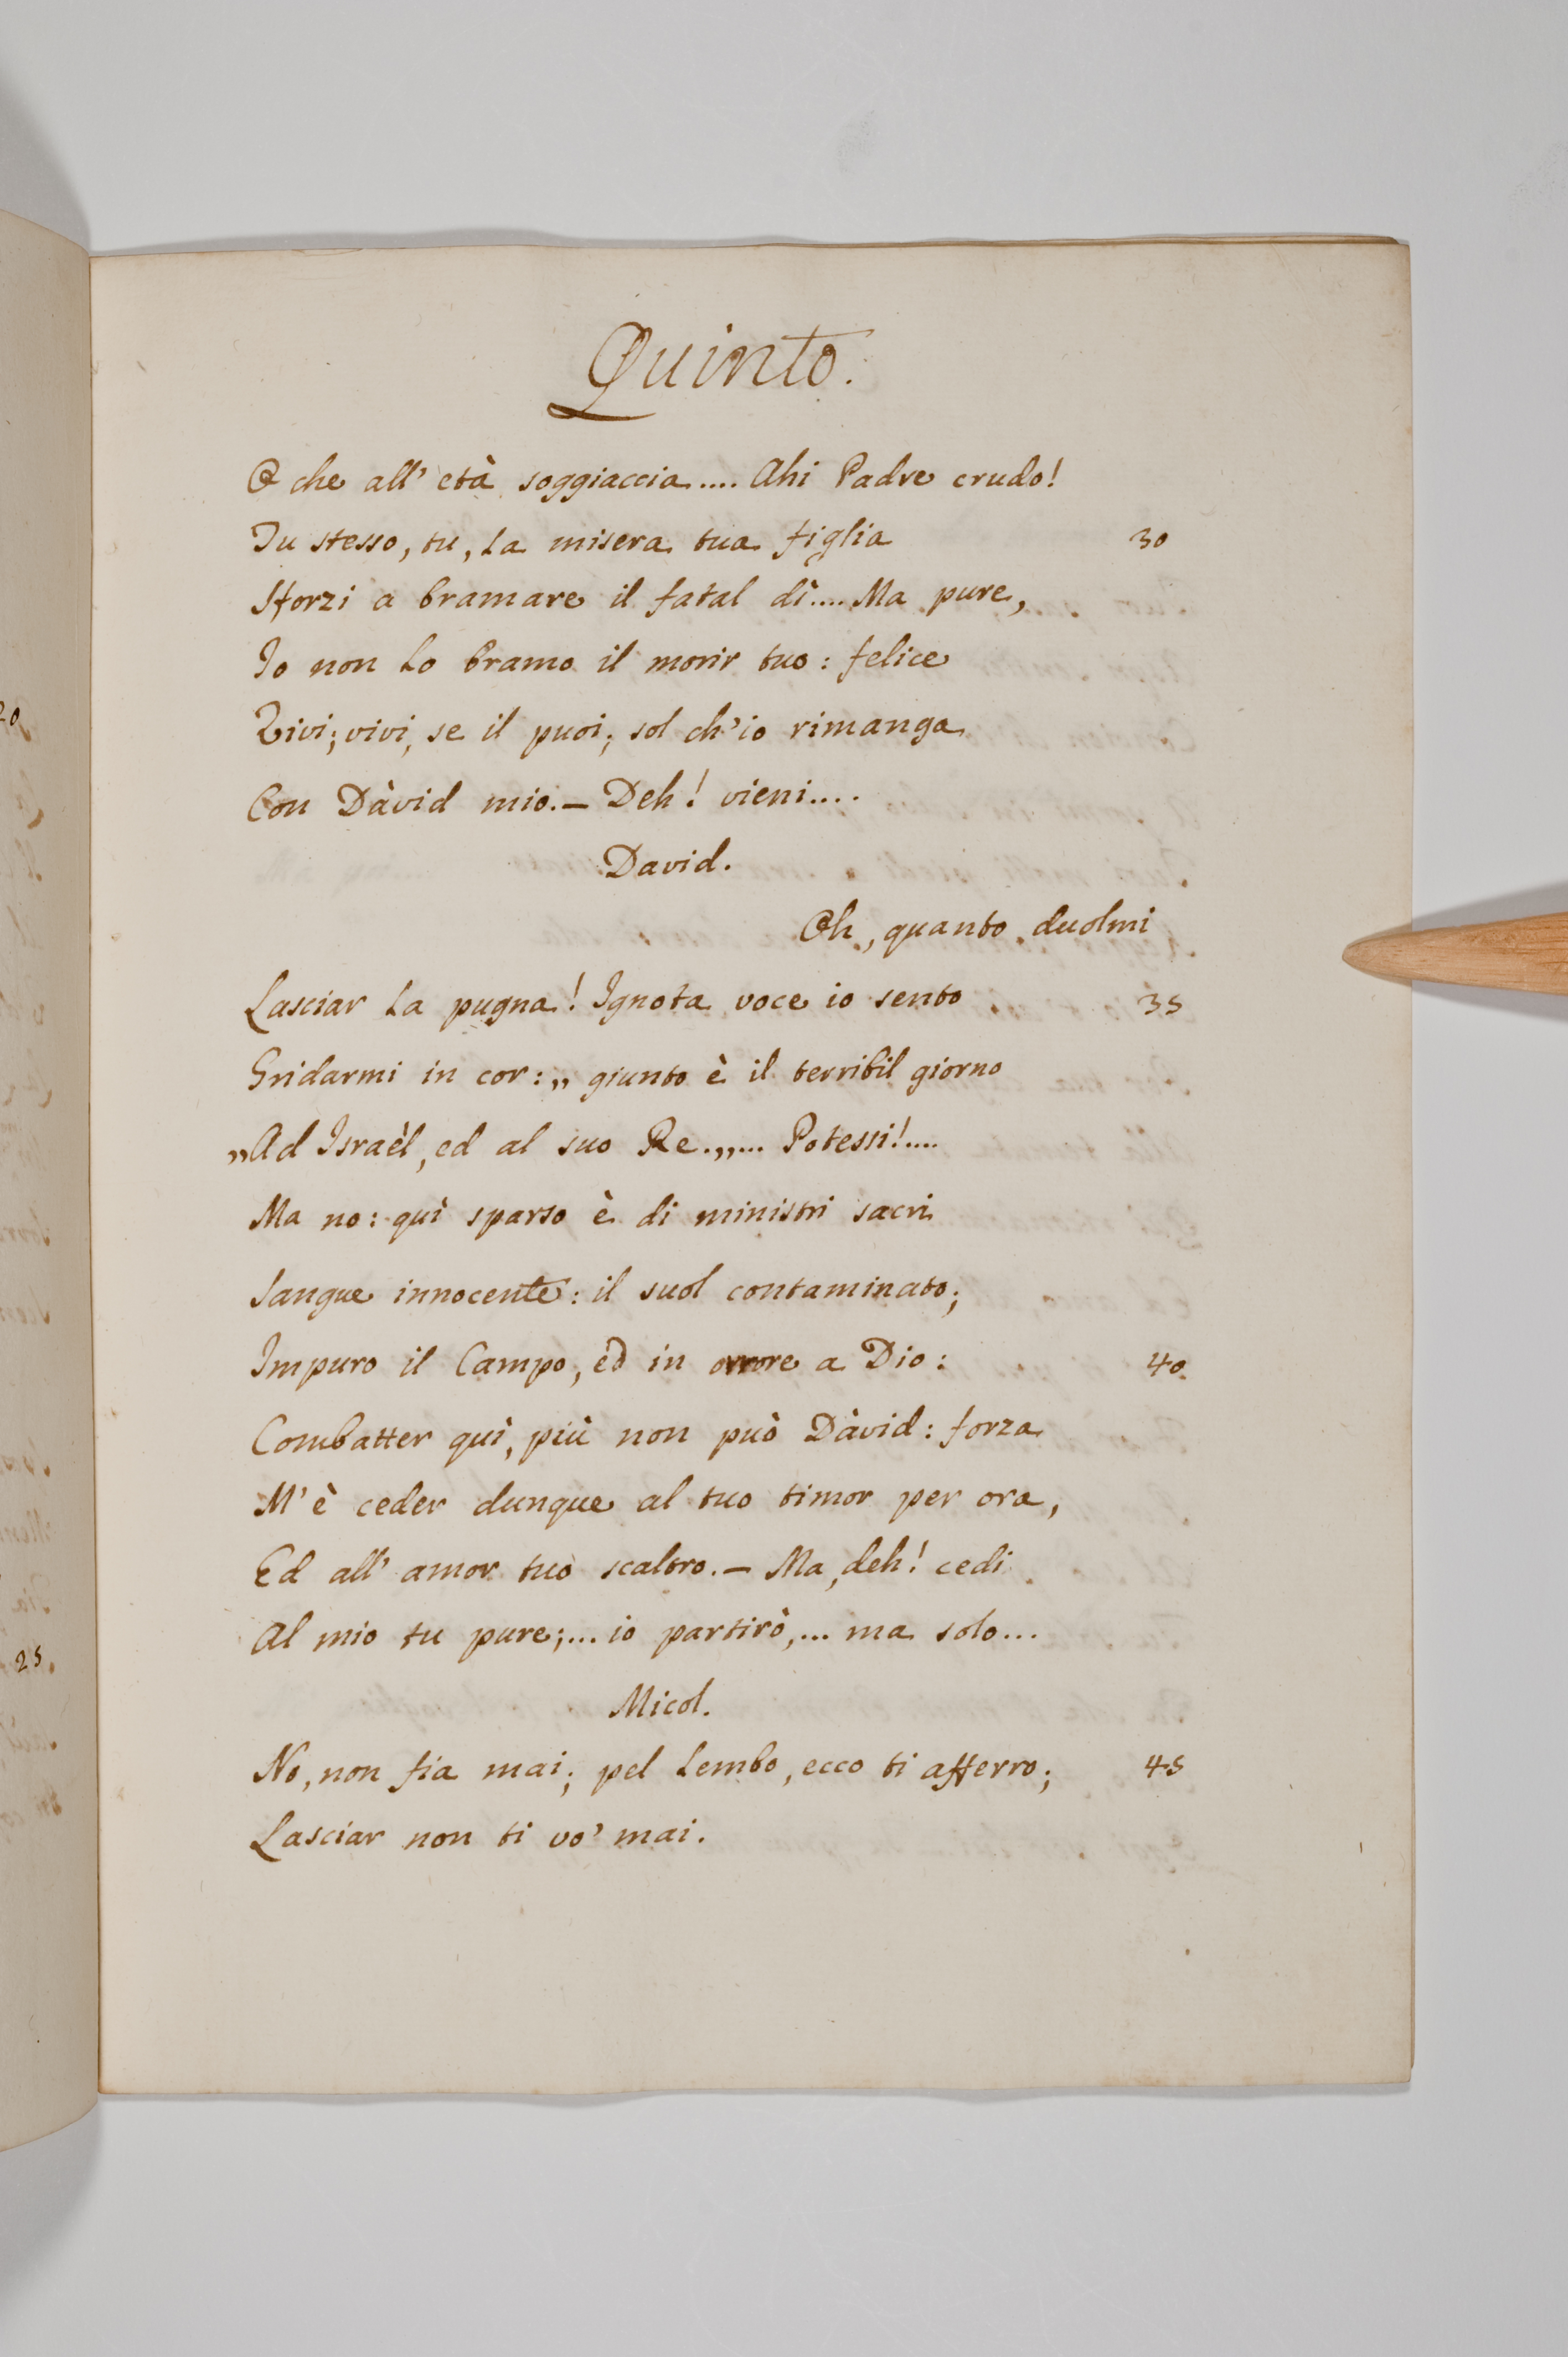 Quinto.
O che all' età soggiaccia.... Ahi Padre crudo!
Tu stesso, tu, la misera tua figlia 30
Sforzi a bramare il fatal dì.... Ma pure,
Io non lo bramo il morir tuo: felice
Vivi; vivi, se il puoi; sol ch'io rimanga
Con Dàvid mio. — Deh! vieni....
David.
Oh, quanto duolmi
Lasciar la pugna! Ignota voce io sento 35
Gridarmi in cor: „ giunto è il terribil giorno
„Ad Israèl, ed al suo Re.„... Potessi!....
Ma no: quì sparso è di ministri sacri
Sangue innocente: il suol contaminato;
Impuro il Campo, ed in orrore a Dio: 40.
Combatter quì, più non può Dàvid: forza
M'è ceder dunque al tuo timor per ora,
Ed all' amor tuo scaltro. — Ma, deh! cedi
Al mio tu pure;... io partirò,... ma solo...
Micol.
No, non fia mai; pel lembo, ecco ti afferro; 45
Lasciar non ti vo' mai.
25